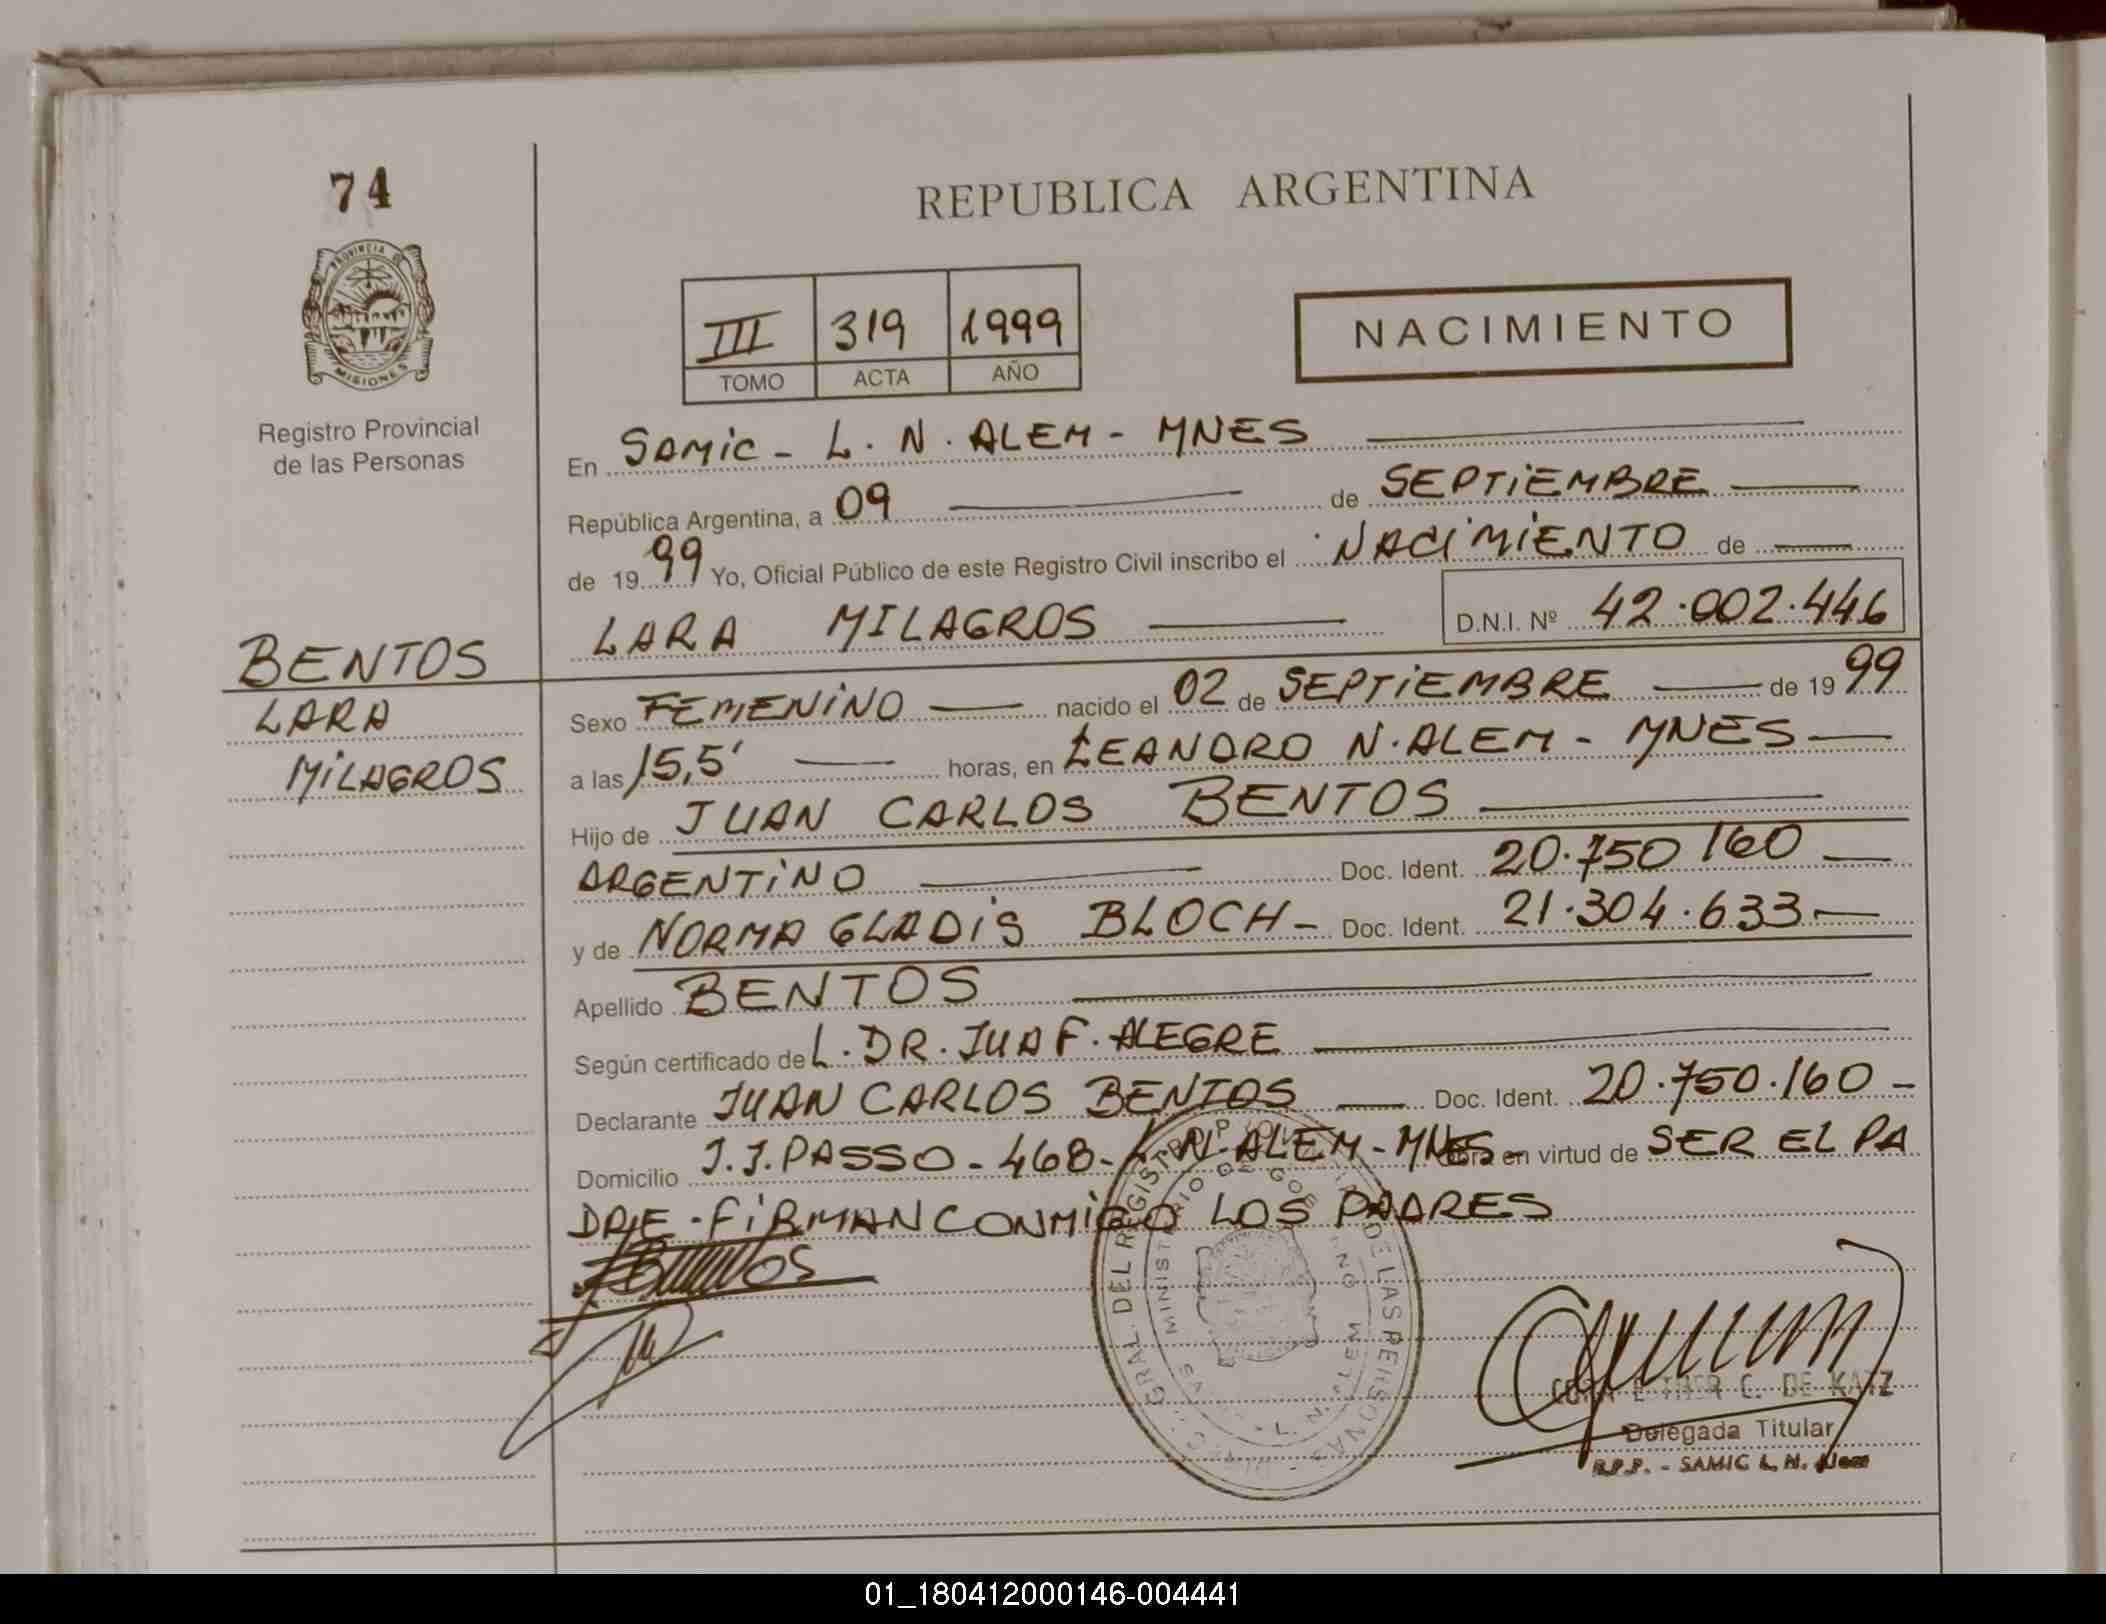 74
REPUBLICA ARGENTINA
PROVINCIA DE
MISIONES
Registro Provincial
de las Personas
III 319 1999
TOMO ACTA AÑO
NACIMIENTO
En SAMIC - L. N. ALEM - MNES
República Argentina, a 09 de SEPTIEMBRE
de 1999 Yo, Oficial Público de este Registro Civil inscribo el NACIMIENTO de
LARA MILAGROS D.N.I. Nº 42.002.446
BENTOS
LARA
MILAGROS
Sexo FEMENINO nacido el 02 de SEPTIEMBRE de 1999
a las 15,5' horas, en LEANDRO N. ALEM - MNES
Hijo de JUAN CARLOS BENTOS
ARGENTINO Doc. Ident. 20.750160
y de NORMA GLADIS BLOCH - Doc. Ident. 21.304.633
Apellido BENTOS
Según certificado de L. DR. JUA F. ALEGRE
Declarante JUAN CARLOS BENTOS Doc. Ident. 20.750.160 -
Domicilio J.J. PASSO - 468 - L. N. ALEM - MNES - Obra en virtud de SER EL PA
DRE - FIRMAN CONMIGO LOS PADRES
GRAL. DEL REGISTRO DE LAS PERSONAS
MINISTERIO DE GOBIERNO
L. N. ALEM
C. DE KATZ
Delegada Titular
R.P.P. - SAMIC L. N. Alem
01_180412000146-004441